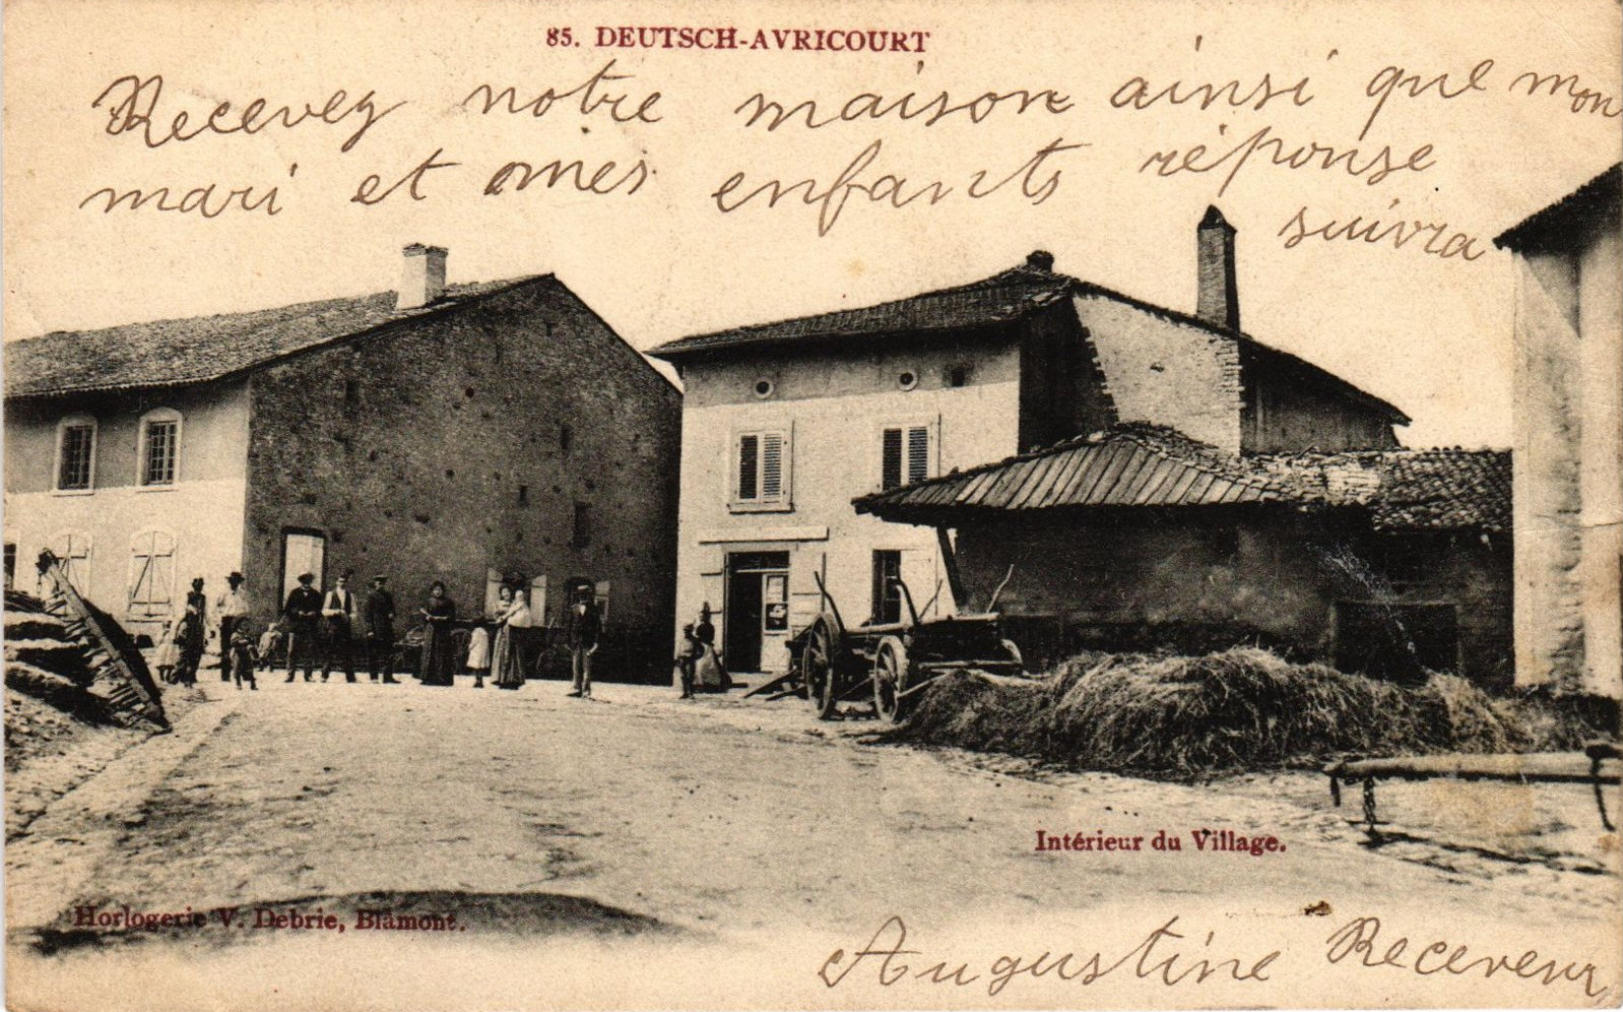 85. DEUTSCH-AVRICOURT
Recevez notre maison ainsi que mon
mari et mes enfants réponse
suivra
Intérieur du Village.
Horlogerie V. Debrie, Blâmont.
Augustine Receveur